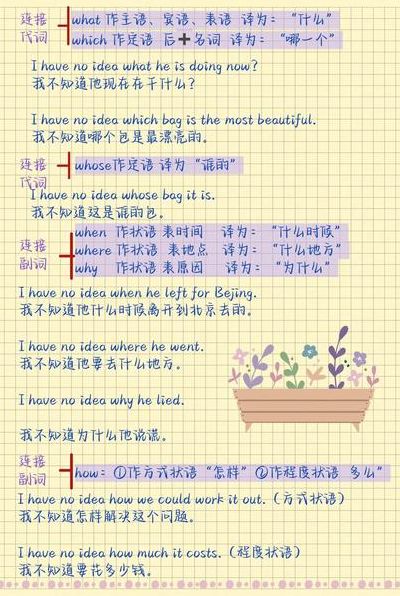 连接代词
what 作主语、宾语、表语 译为：“什么”
which 作定语 后+名词 译为：“哪一个”
I have no idea what he is doing now?
我不知道他现在在干什么？
I have no idea which bag is the most beautiful.
我不知道哪个包是最漂亮的。
连接代词
whose作定语 译为“谁的”
I have no idea whose bag it is.
我不知道这是谁的包。
连接副词
when 作状语 表时间 译为：“什么时候”
where 作状语 表地点 译为：“什么地方”
why 作状语 表原因 译为：“为什么”
I have no idea when he left for Bejing.
我不知道他什么时候离开到北京去的。
I have no idea where he went.
我不知道他要去什么地方。
I have no idea why he lied.
我不知道为什么他说谎。
连接副词
how：①作方式状语“怎样”②作程度状语 多么”
I have no idea how we could work it out.（方式状语）
我不知道怎样解决这个问题。
I have no idea how much it costs.（程度状语）
我不知道要花多少钱。